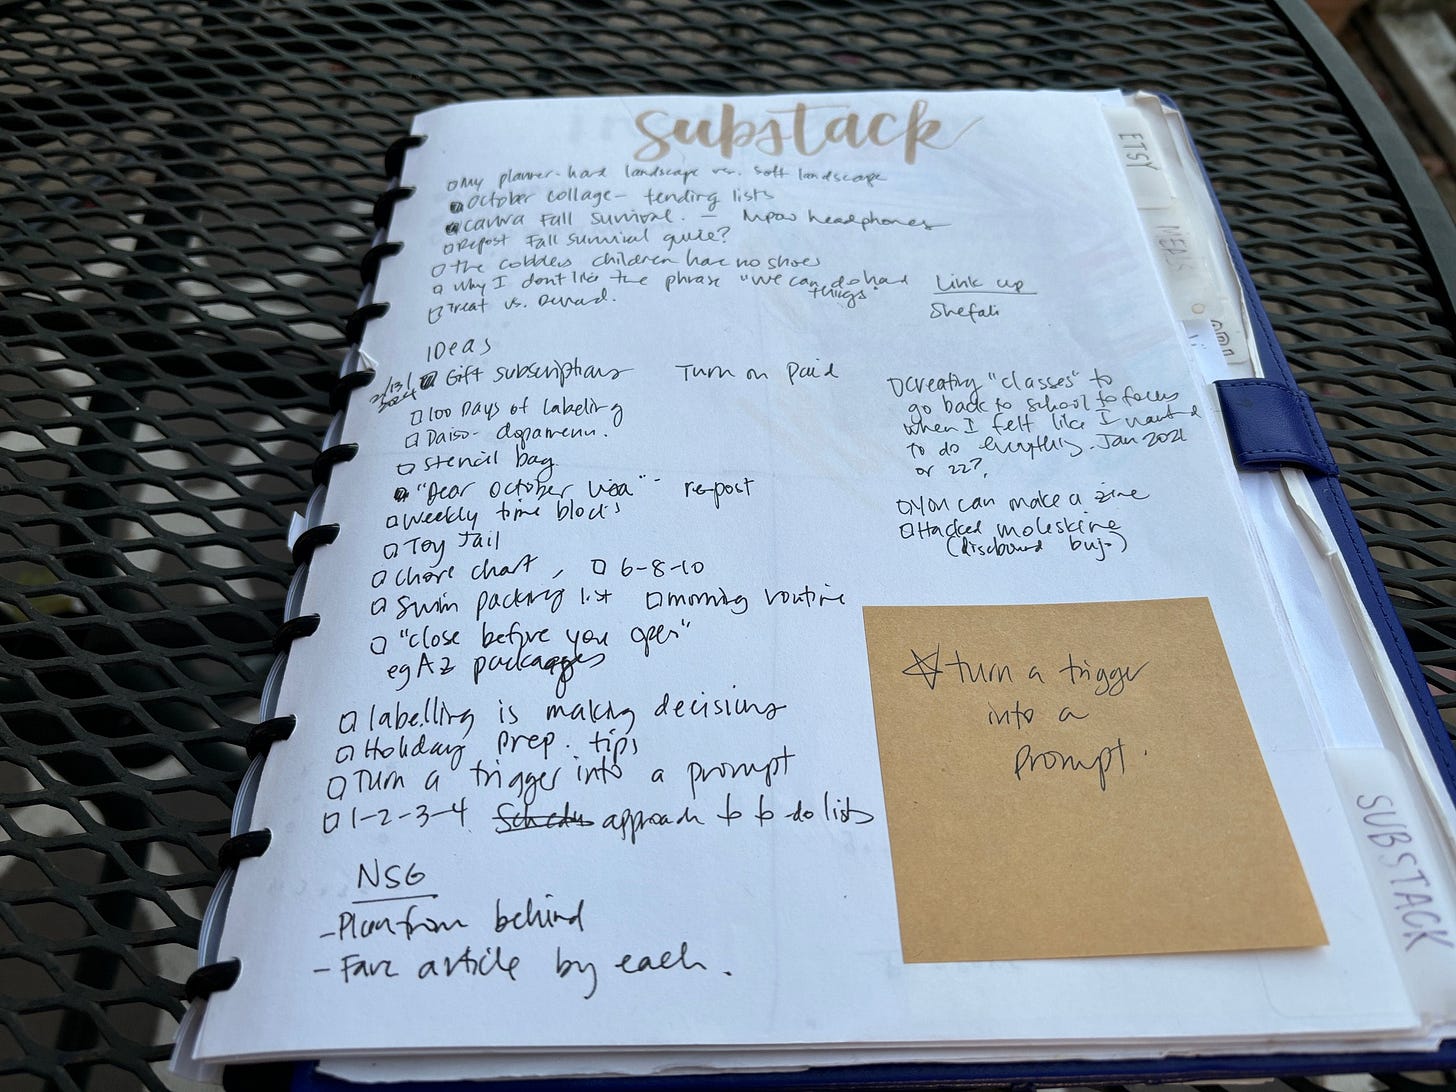 substack
My planner- hard landscape vs. soft landscape
October collage - tending lists
Fall Survival. - Mpow headphones
Repost Fall Survival guide?
the cobblers children have no shoes
Why I don't like the phrase "we can do hard
things"
Treat vs. Reward.
Link up
Shefali
IDeas
Gift subscriptions
Turn on Paid
100 Days of labeling
Daiso-
stencil bag
"Dear October Lisa" - re-post
weekly time blocks
Toy Jail
Chore chart, 6-8-10
Swim packing list morning routine
"close before you open"
eg AZ packages
labelling is making decisions
Holiday Prep. tips
Turn a trigger into a prompt
1-2-3-4 approach to to-do lists
NSG
- Plan from behind
- Fave article by each.
creating "classes" to
go back to school to focus
when I felt like I wanted
to do everything. Jan 2021
or 22?
You can make a zine
Hacked moleskine
(discbound bujo)
turn a trigger
into a
prompt.
ETSY
SUBSTACK